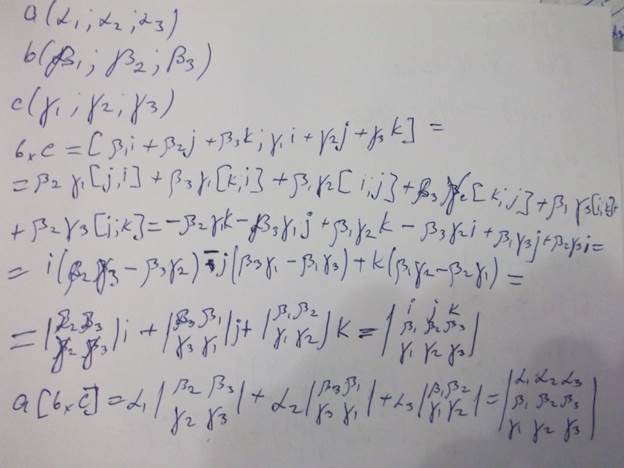 a(α₁; α₂; α₃)
b(β₁; β₂; β₃)
c(γ₁; γ₂; γ₃)
b×c = [β₁i + β₂j + β₃k; γ₁i + γ₂j + γ₃k] =
= β₂γ₁[j;i] + β₃γ₁[k;i] + β₁γ₂[i;j] + β₃γ₂[k;j] + β₁γ₃[i;k]+
+ β₂γ₃[j;k] = -β₂γ₁k - β₃γ₁j + β₁γ₂k - β₃γ₂i + β₁γ₃j + β₂γ₃i =
= i(β₂γ₃ - β₃γ₂) - j(β₃γ₁ - β₁γ₃) + k(β₁γ₂ - β₂γ₁) =
= |β₂ β₃ / γ₂ γ₃|i + |β₃ β₁ / γ₃ γ₁|j + |β₁ β₂ / γ₁ γ₂|k = |i j k / β₁ β₂ β₃ / γ₁ γ₂ γ₃|
a[b×c] = α₁|β₂ β₃ / γ₂ γ₃| + α₂|β₃ β₁ / γ₃ γ₁| + α₃|β₁ β₂ / γ₁ γ₂| = |α₁ α₂ α₃ / β₁ β₂ β₃ / γ₁ γ₂ γ₃|